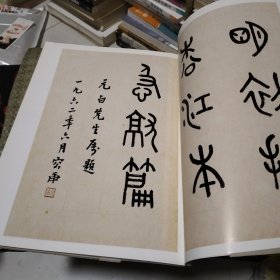 明初拓
松江本
急就篇
元白先生属题
一九六二年六月容庚